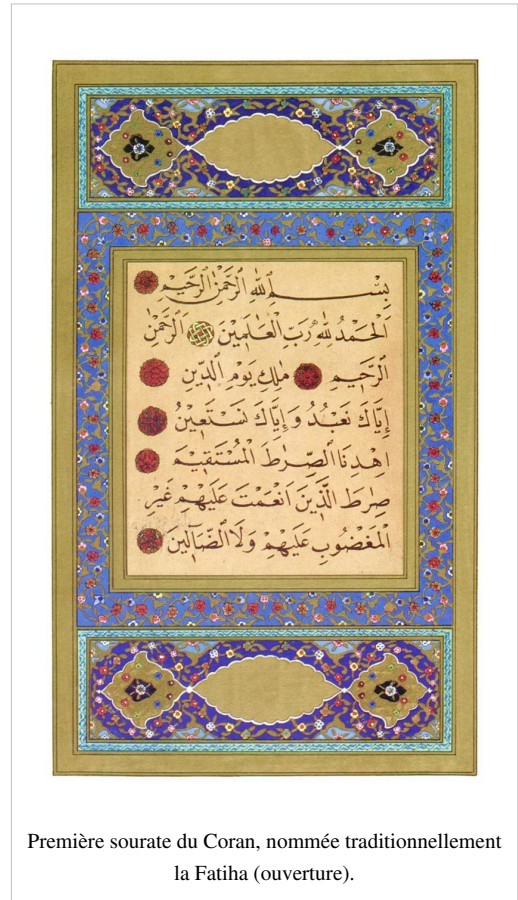 بِسْــــمِ اللهِ الرَّحْمٰنِ الرَّحِيمِ
اَلْحَمْدُ لِلّٰهِ رَبِّ الْعَالَمِينَ الرَّحْمٰنِ
الرَّحِيمِ مٰلِكِ يَوْمِ الدِّينِ
إِيَّاكَ نَعْبُدُ وَإِيَّاكَ نَسْتَعِينُ
اِهْدِنَا الصِّرٰطَ الْمُسْتَقِيمَ
صِرٰطَ الَّذِينَ اَنْعَمْتَ عَلَيْهِمْ غَيْرِ
الْمَغْضُوبِ عَلَيْهِمْ وَلَا الضَّآلِّينَ
Première sourate du Coran, nommée traditionnellement
la Fatiha (ouverture).